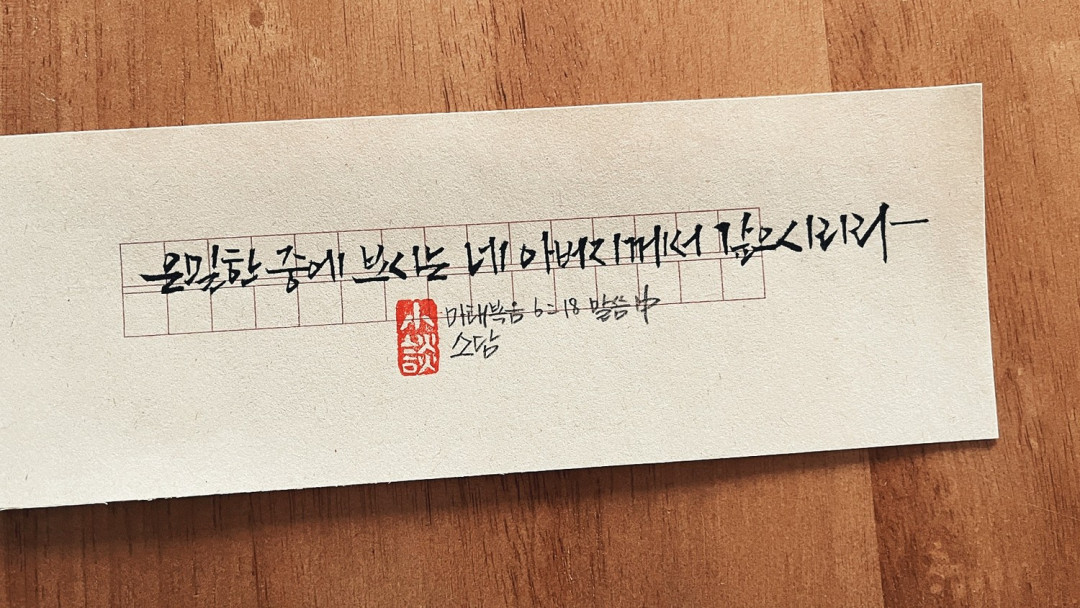 은밀한 중에 보시는 네 아버지께서 갚으시리라ㅡ
마태복음 6:18 말씀 中
소담
小談